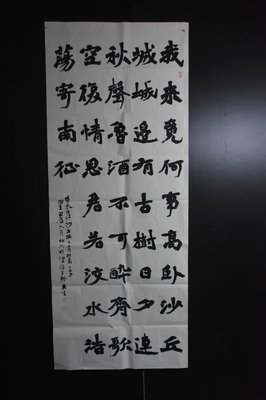 我来竟何事高卧沙丘
城城邊有古樹日夕連
秋聲魯酒不可醉齊歌
空復情思君若汶水浩
蕩寄南征